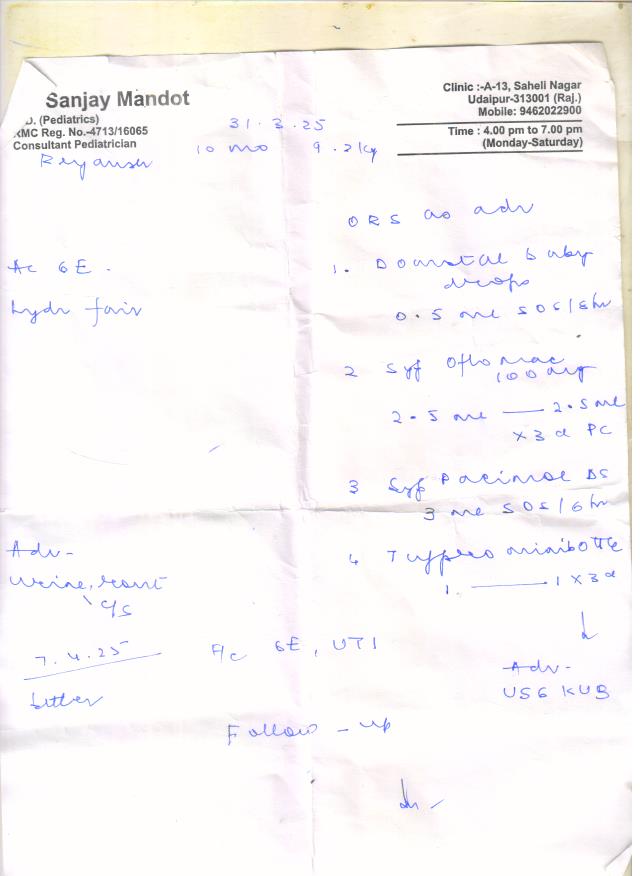 Sanjay Mandot
.D. (Pediatrics)
KMC Reg. No.-4713/16065
Consultant Pediatrician
Clinic :-A-13, Saheli Nagar
Udaipur-313001 (Raj.)
Mobile: 9462022900
Time : 4.00 pm to 7.00 pm
(Monday-Saturday)
31.3.25
Reyansh 10 mo 9.2 kg
ORS as adv
Ac GE.
Hydr fair
1. Domstal baby
drops
0.5 ml SOS/8hr
2 Syp Oflomac
100 mg
2.5 ml — 2.5 ml
x 3 d PC
3 Syp Pacimol DS
3 ml SOS/6hr
Adv-
Urine, rout
c/s
4 minibottle
1. — 1 x 3 d
7.4.25
better
F/c GE, UTI
Adv-
USG KUB
Follow-up